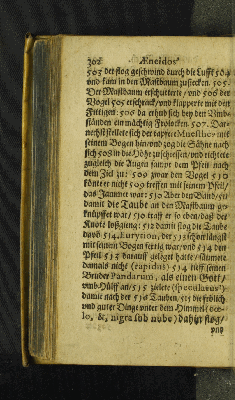 302 Æneidos
503 der flog geschwind durch die Lufft 504
und kam in den Mastbaum zustecken. 505.
Der Mastbaum erschutterte / und 506 der
Vogel 505 erschrack / und klapperte mit den
Fittigen: 506 da erhub sich bey den Umb-
ständen ein mächtig Frolocken. 507. Dar-
nechst stellete sich der tapffre Mnestheo mit
seinem Bogen hin / und zog die Sähne nach
sich 508 in die Höhe zuschiessen / und richtete
zugleich die Augen sampt dem Pfeil nach
dem Ziel zu: 509 zwar den Vogel 510
könte er nicht 509 treffen mit seinem Pfeil /
das Jammer war: 510 Aber den Band / da
damit die Taube an den Mastbaum ge-
knüpffet war / 510 traff er so eben / daß der
Knote loßgieng: 512 damit flog die Taube
davon 514. Eurytion, der 513 schon längst
mit seinem Bogen fertig war / und 514 den
Pfeil 513 darauff gelegt hatte / säumete
damals nicht (rapidus) 514 rieff seinen
Bruder Pandarum, als einen Gott /
umb Hülff an / 515 zielete (speculatus)
damit nach der 516 Tauben / 515 die frölich
und guter Dinge unter dem Himmel / (coe-
lo, &, nigra sub nube) dahin flog /
und